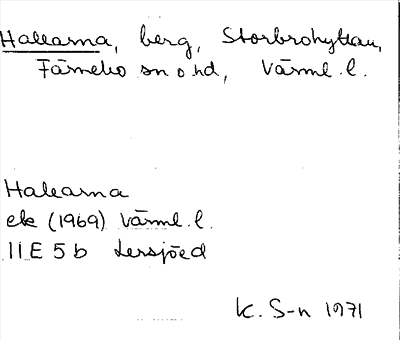 Hallarna, berg, Storbrohyttan,
Färnebo sn o hd, Värml. l.
Hallarna
ek (1969) Värml. l.
11E 5b Lersjöed
K. S-n 1971